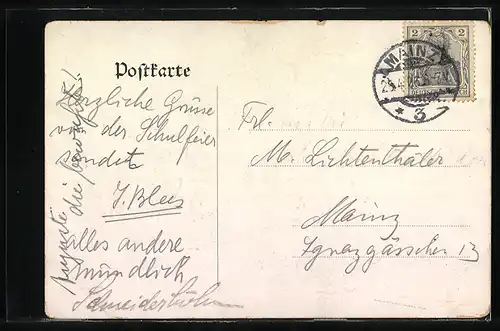 Postkarte
2 2
MAINZ
* 3
Herzliche Grüsse
von der Schulfeier
sendet
J. Blees
alles andere
mündlich
Auguste
die
Frl.
M. Lichtenthäler
Mainz
Ignazgässchen 13